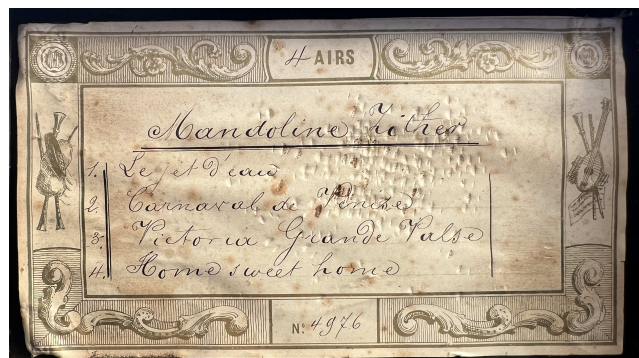 4 AIRS
Mandoline Zither
1. Le jet d'eau
2. Carnaval de Venise
3. Victoria Grande Valse
4. Home sweet home
Nº 4976